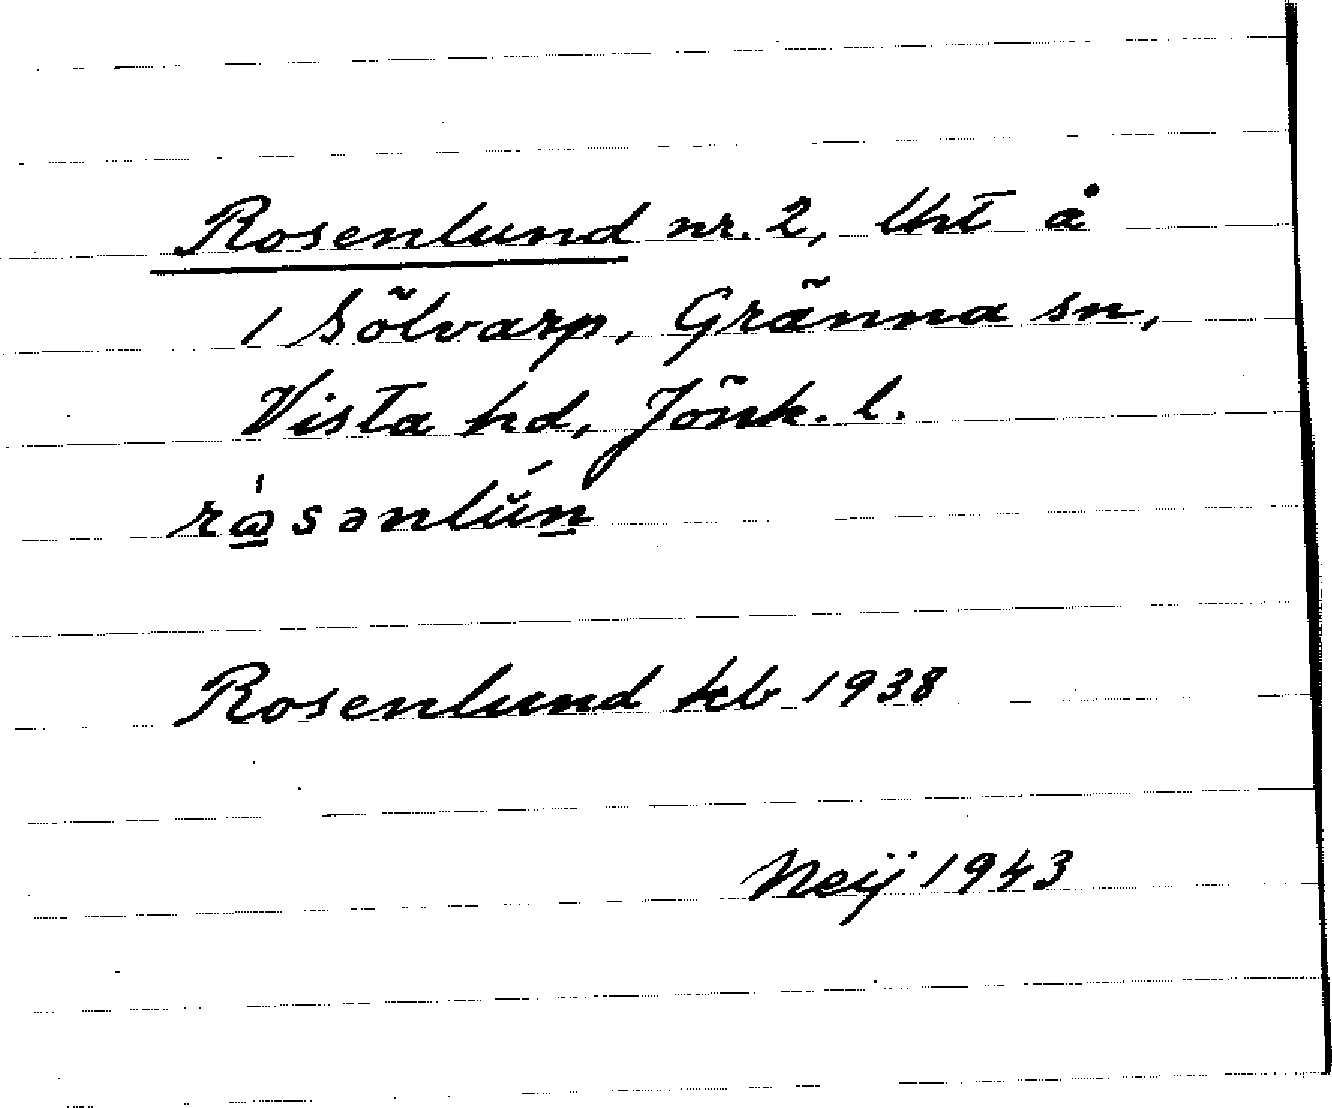 Rosenlund nr. 2, lht å
1 Sölvarp, Gränna sn,
Vista hd, Jönk. l.
Rosenlund kb 1938
Neij 1943